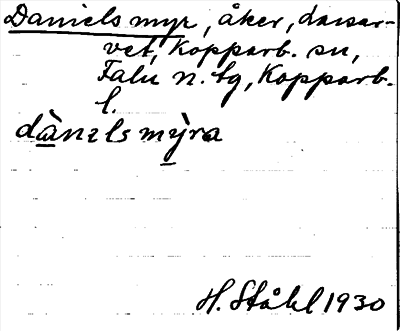 Daniels myr, åker, Dansar-
vet, Kopparb. sn,
Falu n. tg, Kopparb.
l.
dànɛls mỳra
H. Ståhl 1930